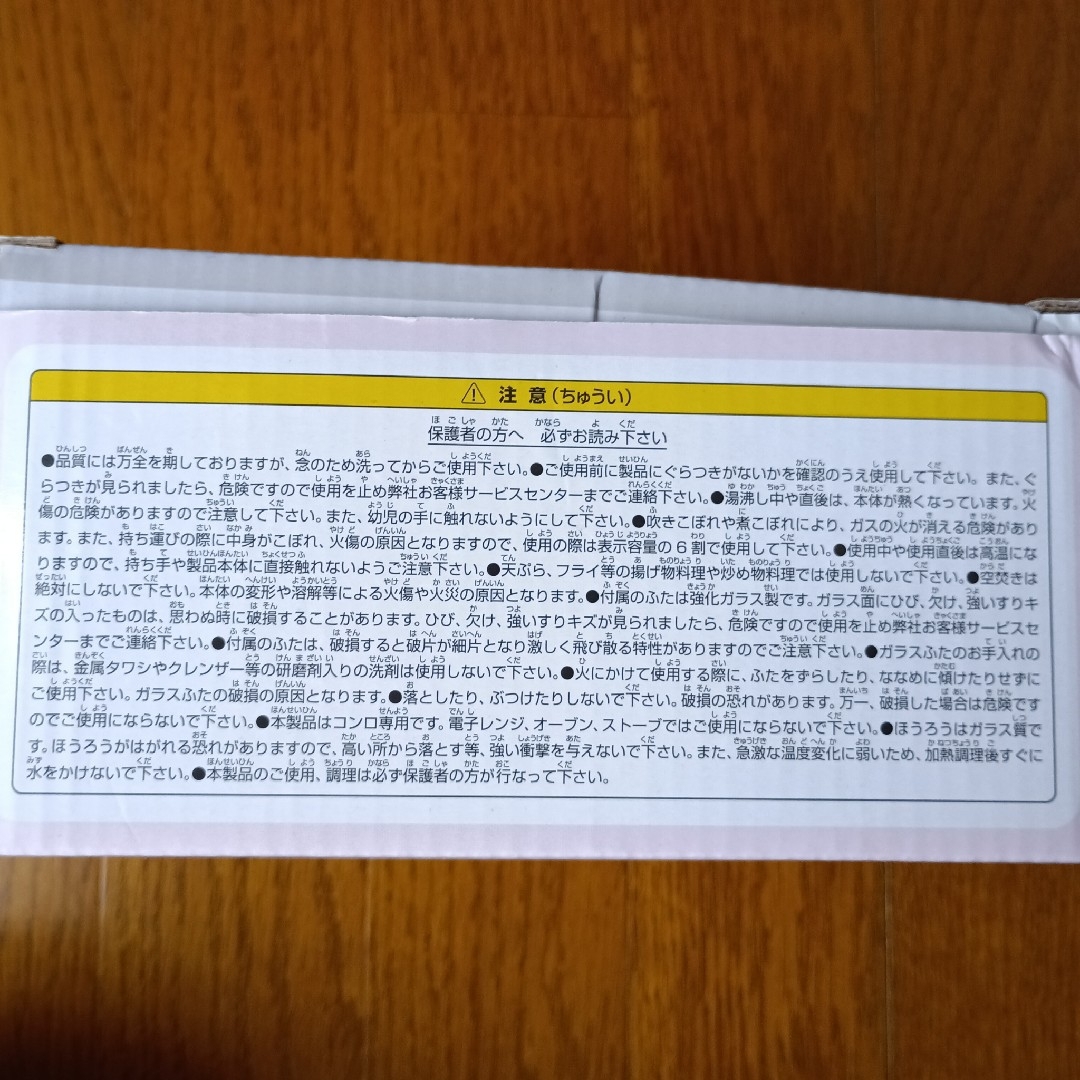 ⚠ 注 意(ちゅうい)
保護者の方へ 必ずお読み下さい
●品質には万全を期しておりますが、念のため洗ってからご使用下さい。●ご使用前に製品にぐらつきがないかを確認のうえ使用して下さい。また、ぐ
らつきが見られましたら、危険ですので使用を止め弊社お客様サービスセンターまでご連絡下さい。●湯沸し中や直後は、本体が熱くなっています。火
傷の危険がありますので注意して下さい。また、幼児の手に触れないようにして下さい。●吹きこぼれや煮こぼれにより、ガスの火が消える危険があり
ます。また、持ち運びの際に中身がこぼれ、火傷の原因となりますので、使用の際は表示容量の6割で使用して下さい。●使用中や使用直後は高温にな
りますので、持ち手や製品本体に直接触れないようご注意下さい。●天ぷら、フライ等の揚げ物料理や炒め物料理では使用しないで下さい。●空焚きは
絶対にしないで下さい。本体の変形や溶解等による火傷や火災の原因となります。●付属のふたは強化ガラス製です。ガラス面にひび、欠け、強いすりキ
ズの入ったものは、思わぬ時に破損することがあります。ひび、欠け、強いすりキズが見られましたら、危険ですので使用を止め弊社お客様サービスセ
ンターまでご連絡下さい。●付属のふたは、破損すると破片が細片となり激しく飛び散る特性がありますのでご注意下さい。●ガラスふたのお手入れの
際は、金属タワシやクレンザー等の研磨剤入りの洗剤は使用しないで下さい。●火にかけて使用する際に、ふたをずらしたり、ななめに傾けたりせずに
ご使用下さい。ガラスふたの破損の原因となります。●落としたり、ぶつけたりしないで下さい。破損の恐れがあります。万一、破損した場合は危険です
のでご使用にならないで下さい。●本製品はコンロ専用です。電子レンジ、オーブン、ストーブではご使用にならないで下さい。●ほうろうはガラス質で
す。ほうろうがはがれる恐れがありますので、高い所から落とす等、強い衝撃を与えないで下さい。また、急激な温度変化に弱いため、加熱調理後すぐに
水をかけないで下さい。●本製品のご使用、調理は必ず保護者の方が行なって下さい。